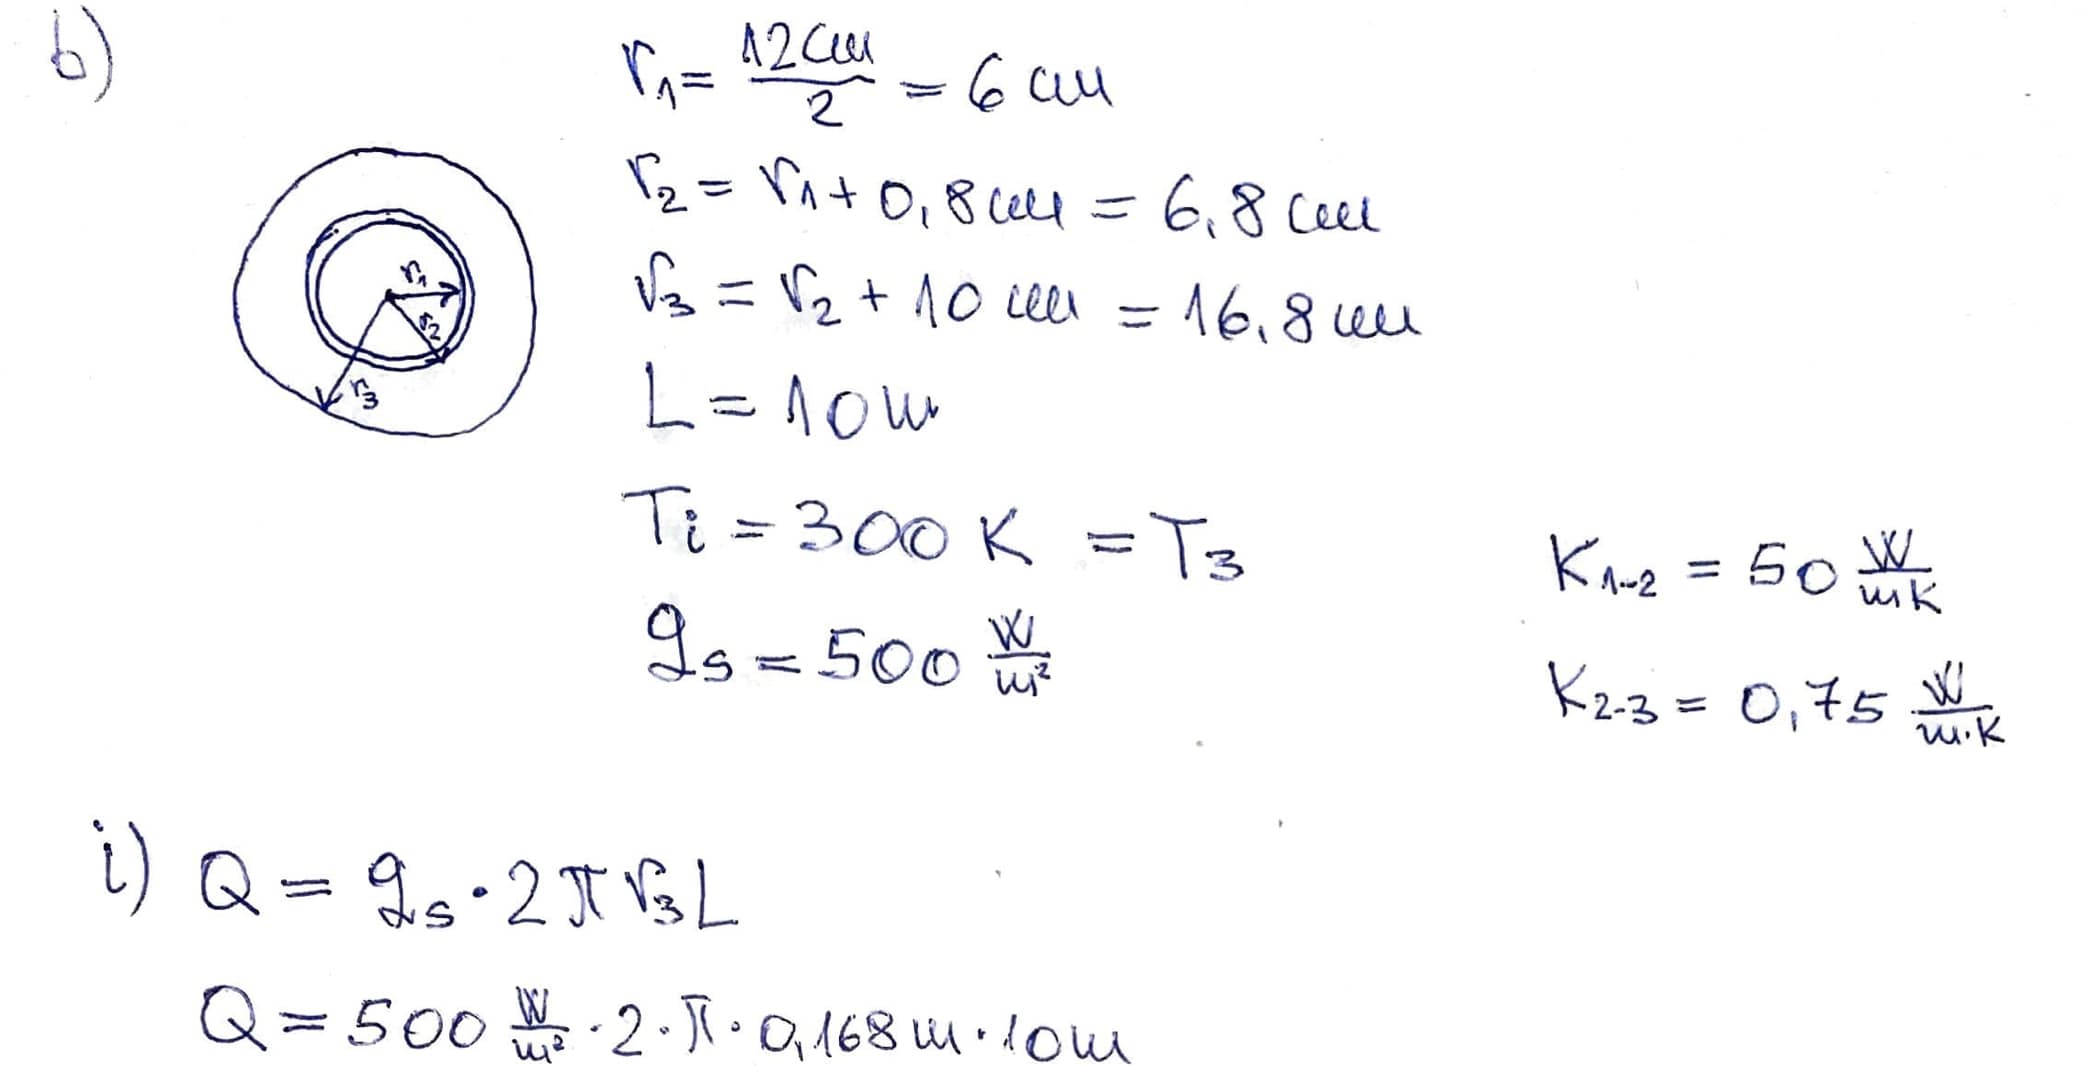 b)
r₁ = 12cm/2 = 6 cm
r₂ = r₁ + 0,8cm = 6,8 cm
r₃ = r₂ + 10 cm = 16,8 cm
r₁
r₂
r₃
L = 10 m
Ti = 300 K = T₃
K₁₋₂ = 50 W/mK
qs = 500 W/m²
K₂₋₃ = 0,75 W/m·K
i) Q = qs · 2πr₃L
Q = 500 W/m² · 2 · π · 0,168 m · 10m